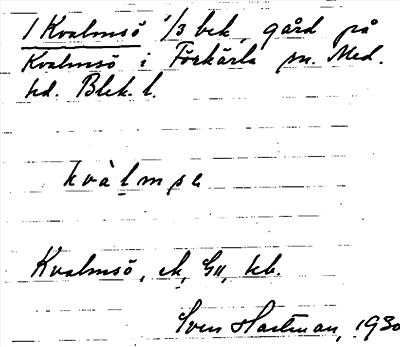 1 Kvalmsö 1/3 bek, gård på
Kvalmsö i Förkärla sn. Med.
hd. Blek. l.
kvàlmsə
Kvalmsö, ek, GII, kb.
Sven Hartman, 1930